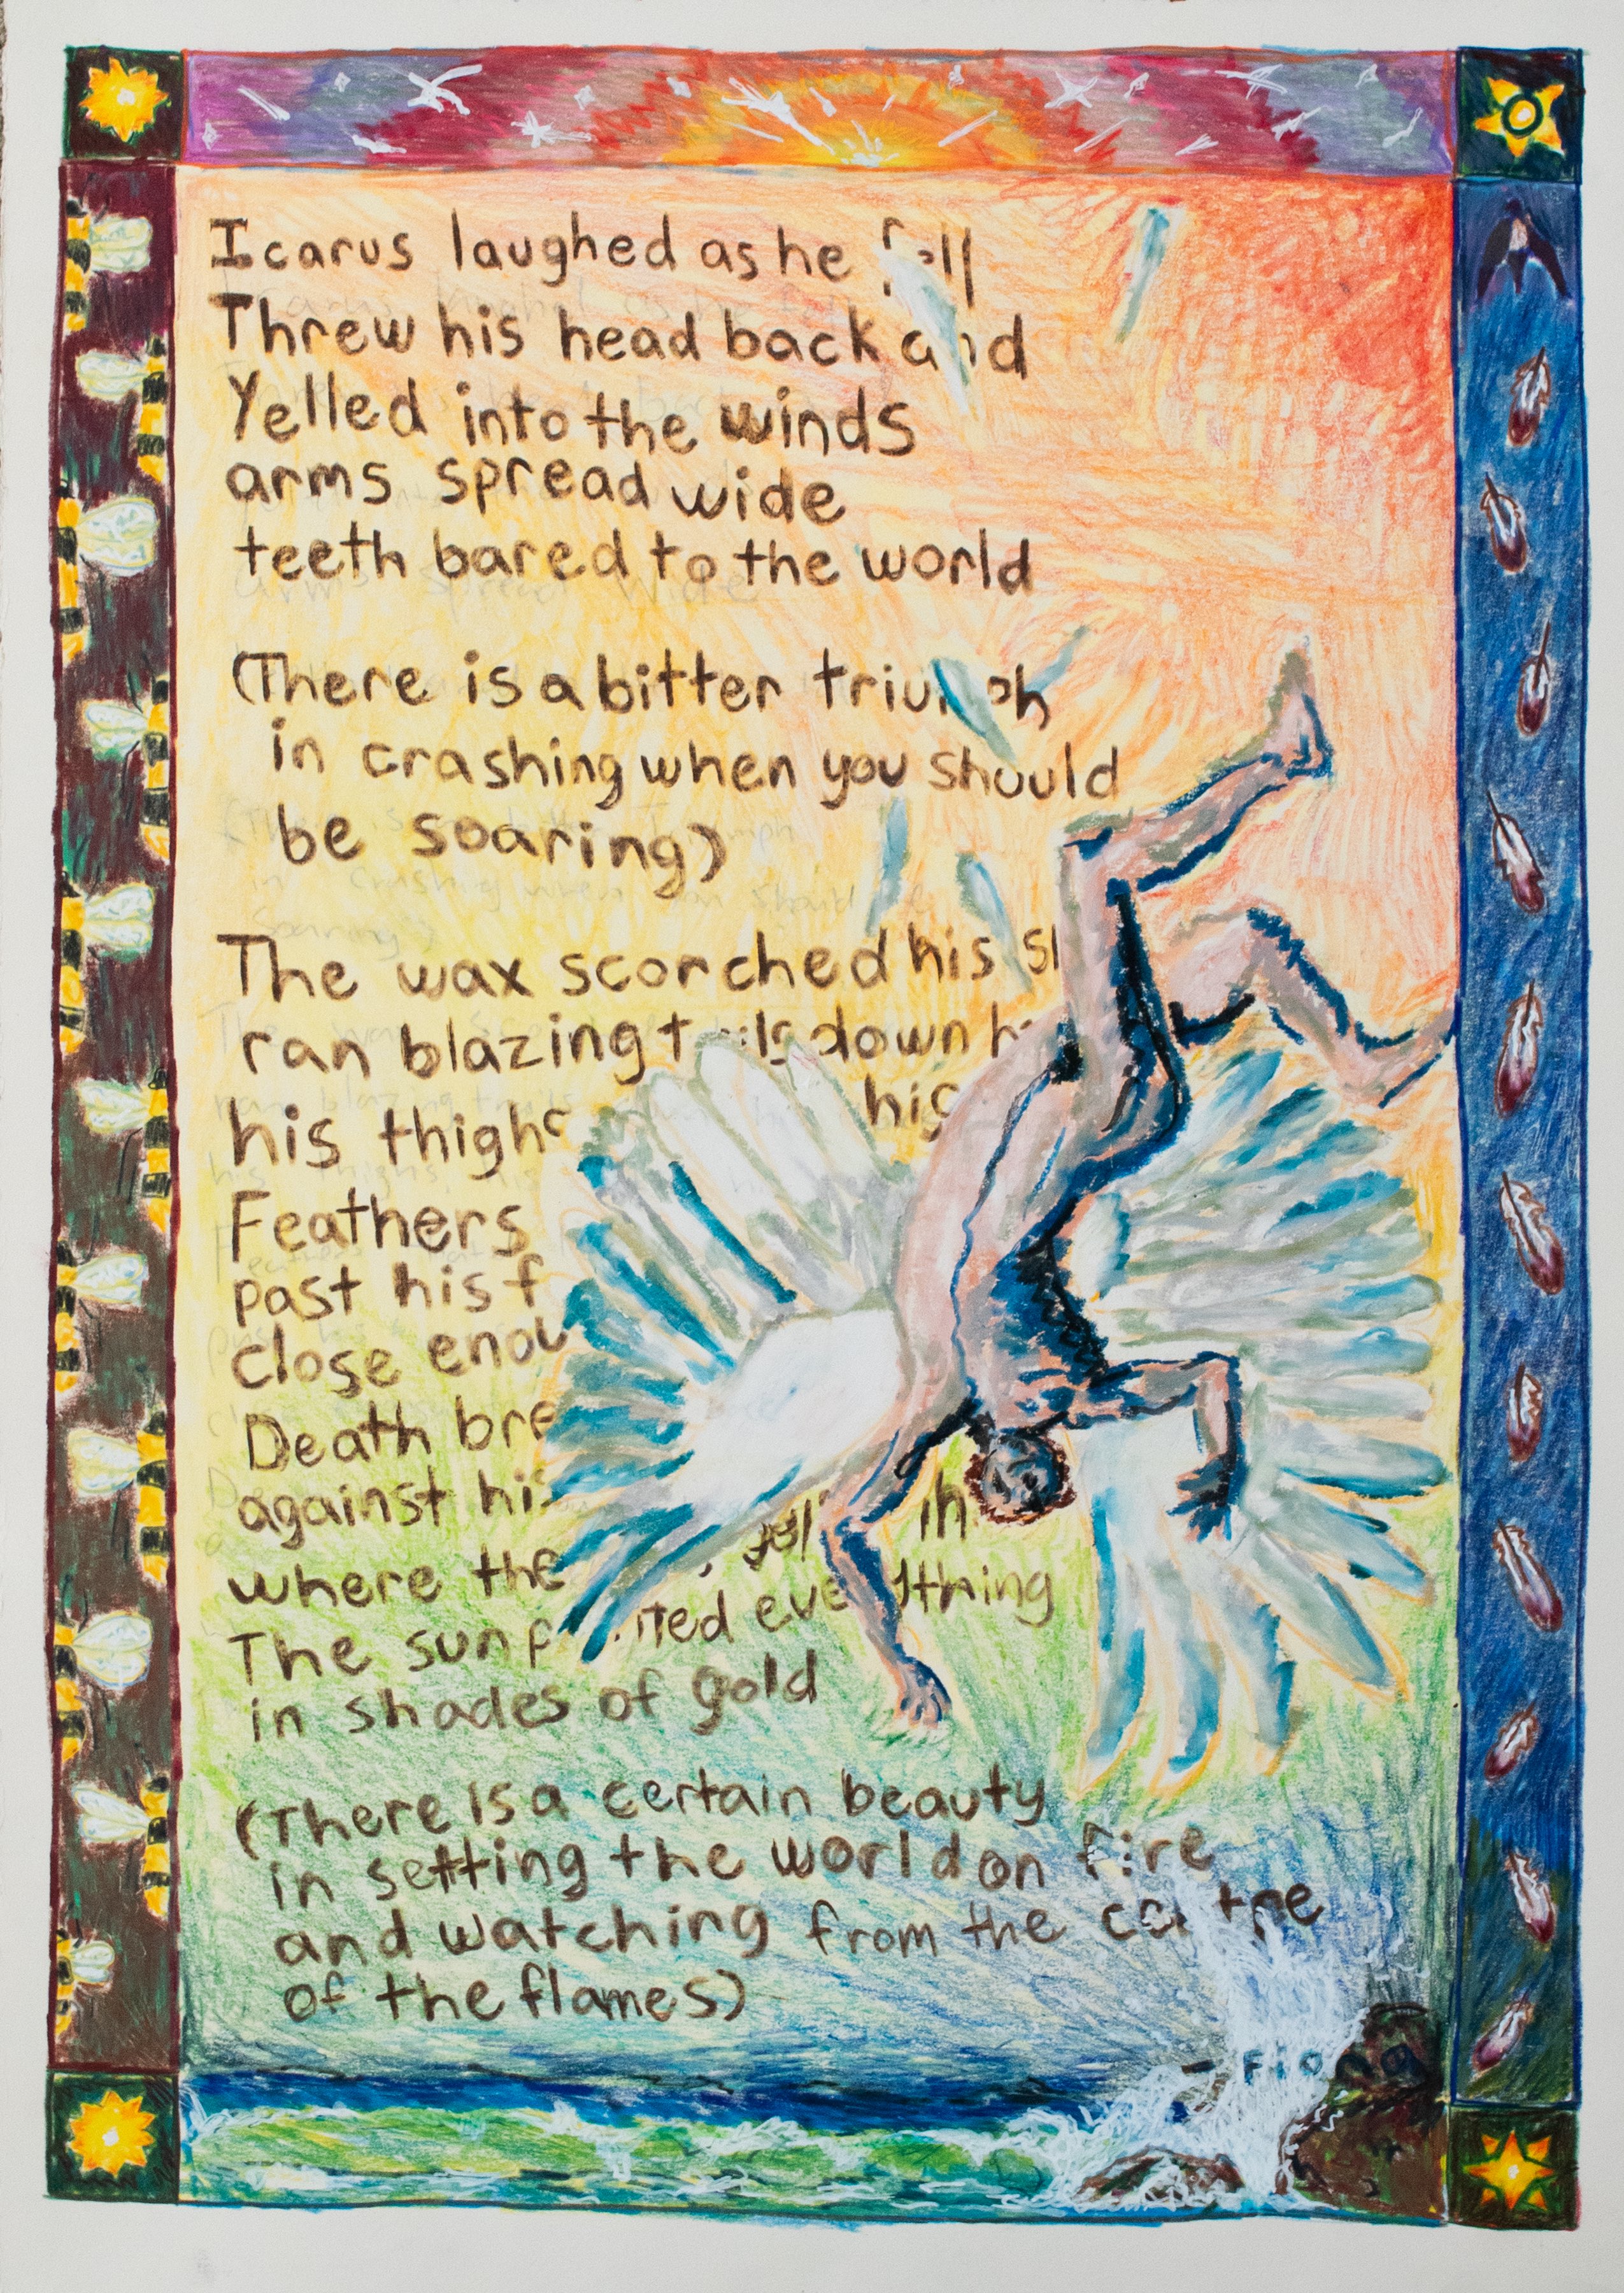 Icarus laughed as he fell
Threw his head back and
Yelled into the winds
arms spread wide
teeth bared to the world
(There is a bitter triumph
in crashing when you should
be soaring)
The wax scorched his
ran blazing trails down
his thighs his
Feathers
past his
close
Death
against his
where
The sun painted everything
in shades of gold
(There is a certain beauty
in setting the world on fire
and watching from the centre
of the flames)
- Fiona